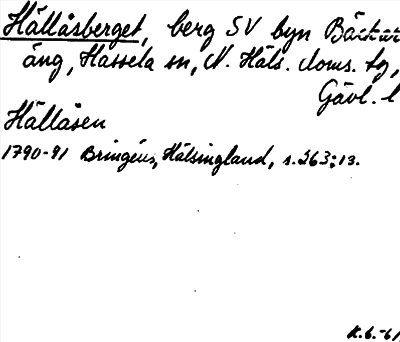 Hällåsberget, berg SV byn Bäckar
äng, Hassela sn, N. Häls. doms. tg,
Gävl. l
Hällåsen
1790-91 Bringéus, Hälsingland, s. 263; 13.
K.G.-61